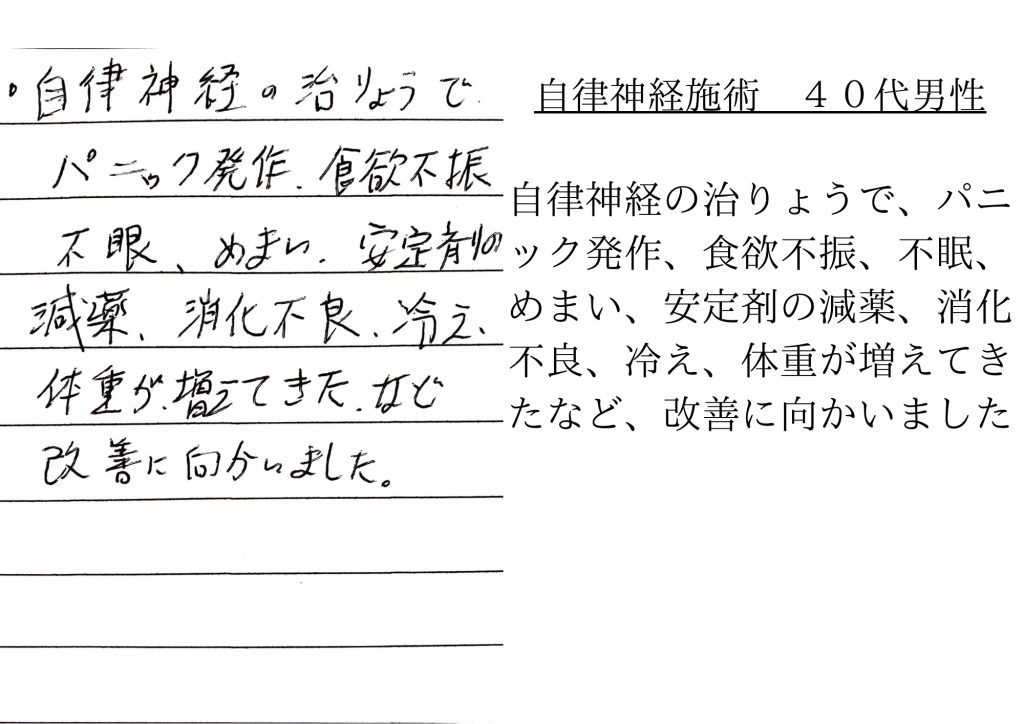 ・自律神経の治りょうで
パニック発作、食欲不振
不眠、めまい、安定剤の
減薬、消化不良、冷え、
体重が増えてきた、など
改善に向かいました。
自律神経施術　４０代男性
自律神経の治りょうで、パニ
ック発作、食欲不振、不眠、
めまい、安定剤の減薬、消化
不良、冷え、体重が増えてき
たなど、改善に向かいました